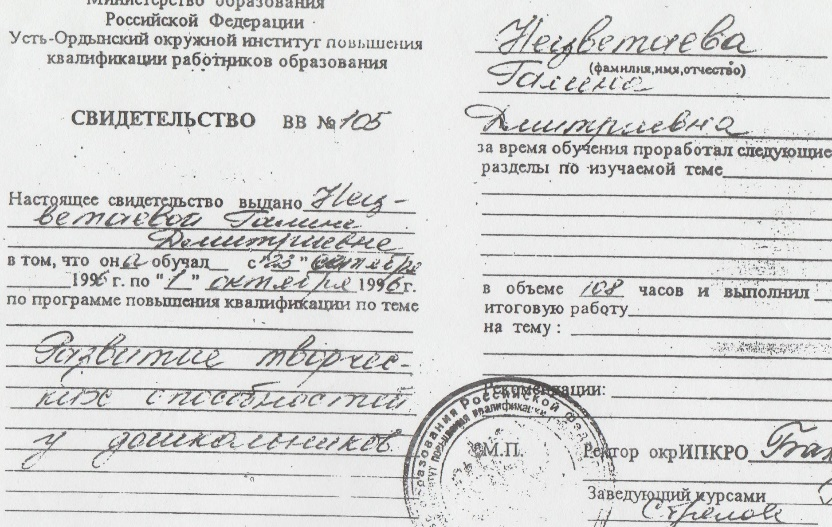 Министерство образования
Российской Федерации
Усть-Ордынский окружной институт повышения
квалификации работников образования
СВИДЕТЕЛЬСТВО ВВ № 105
Настоящее свидетельство выдано Нец-
ветаевой Галине
Дмитриевне
в том, что она обучал с "23" сентября
1996 г. по "1" октября 1996 г.
по программе повышения квалификации по теме
Развитие творчес-
ких способностей
у дошкольников
Нецветаева
(фамилия,имя,отчество)
Галина
Дмитриевна
за время обучения проработал следующие
разделы по изучаемой теме
в объеме 108 часов и выполнил
итоговую работу
на тему :
Рекомендации:
М.П.
Ректор окрИПКРО
Заведующий курсами